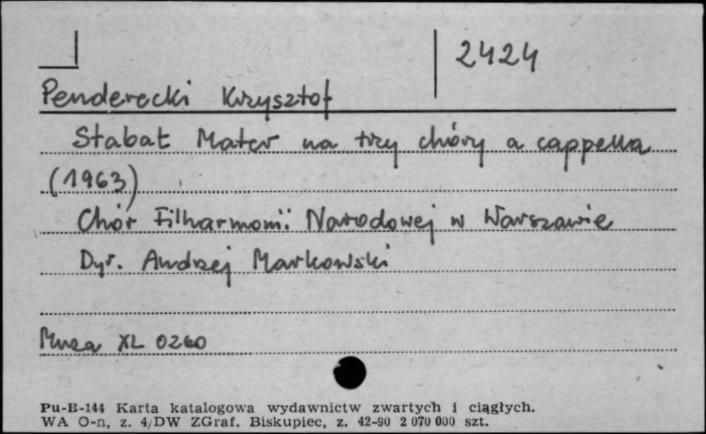 2424
Penderecki Krzysztof
Stabat Mater na trzy chóry a cappella
(1963)
Chór Filharmonii Narodowej w Warszawie
Dyr. Andrzej Markowski
Muza XL 0260
Pu-B-144 Karta katalogowa wydawnictw zwartych i ciągłych.
WA O-n, z. 4/DW ZGraf. Biskupiec, z. 42-90 2 070 000 szt.